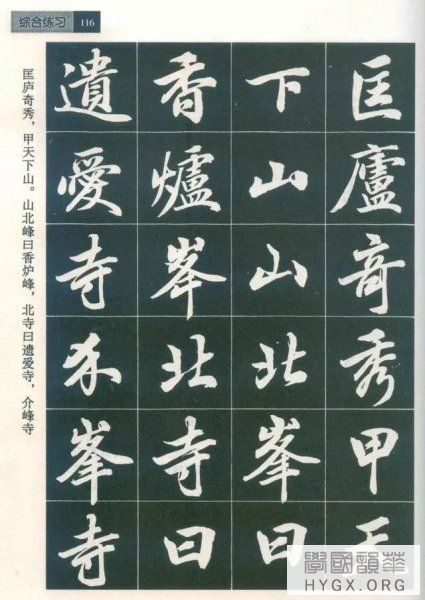 综合练习 116
匡廬奇秀甲天
下山山北峯曰
香爐峯北寺曰
遺愛寺介峯寺
匡庐奇秀，甲天下山。山北峰曰香炉峰，北寺曰遗爱寺，介峰寺
華韻國學
HYGX.ORG